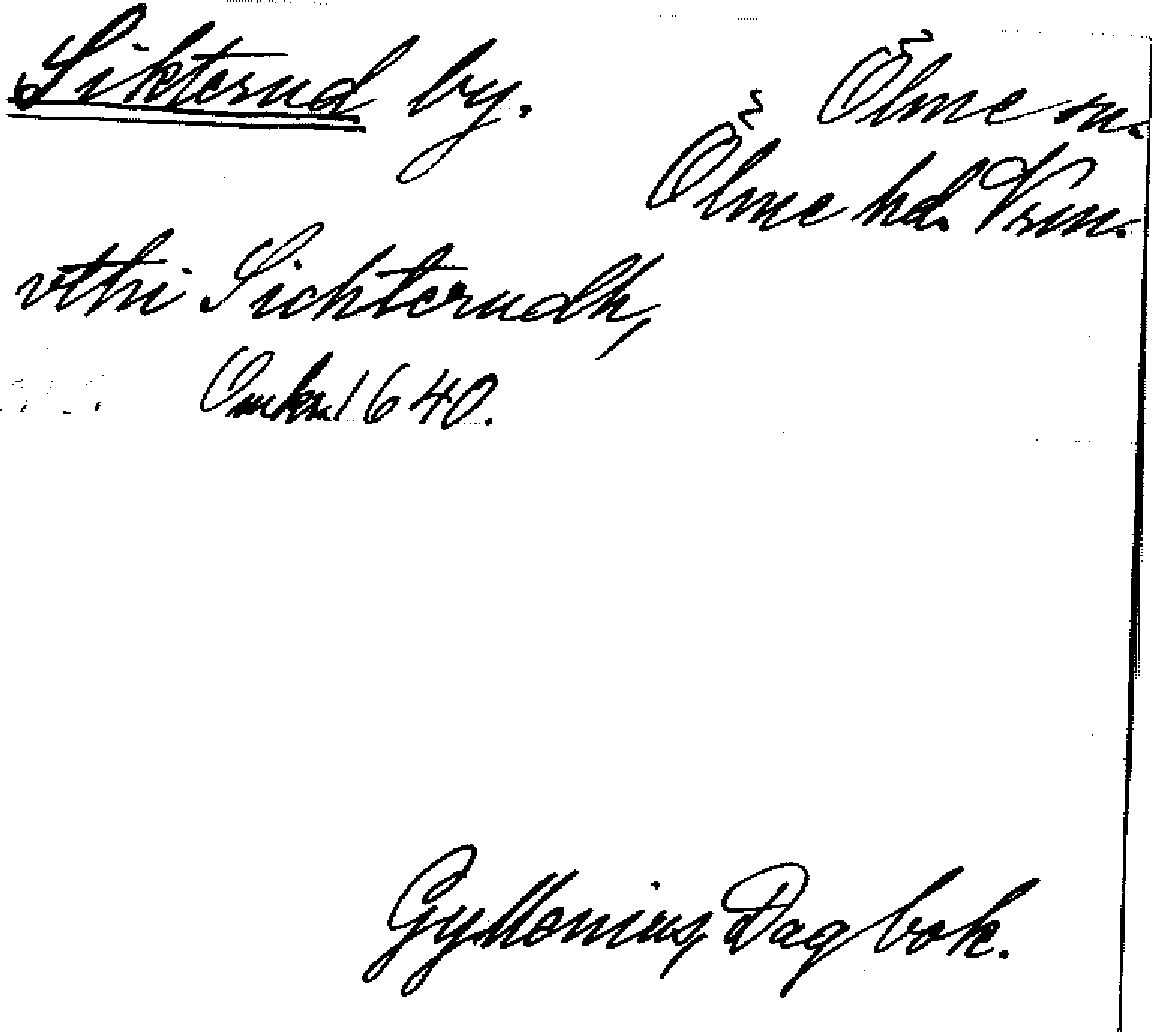 Sikterud by.
Ölme sn.
Ölme hd. Vrm.
vthi Sichterudh,
Omkr. 1640.
Gyllenius, Dagbok.